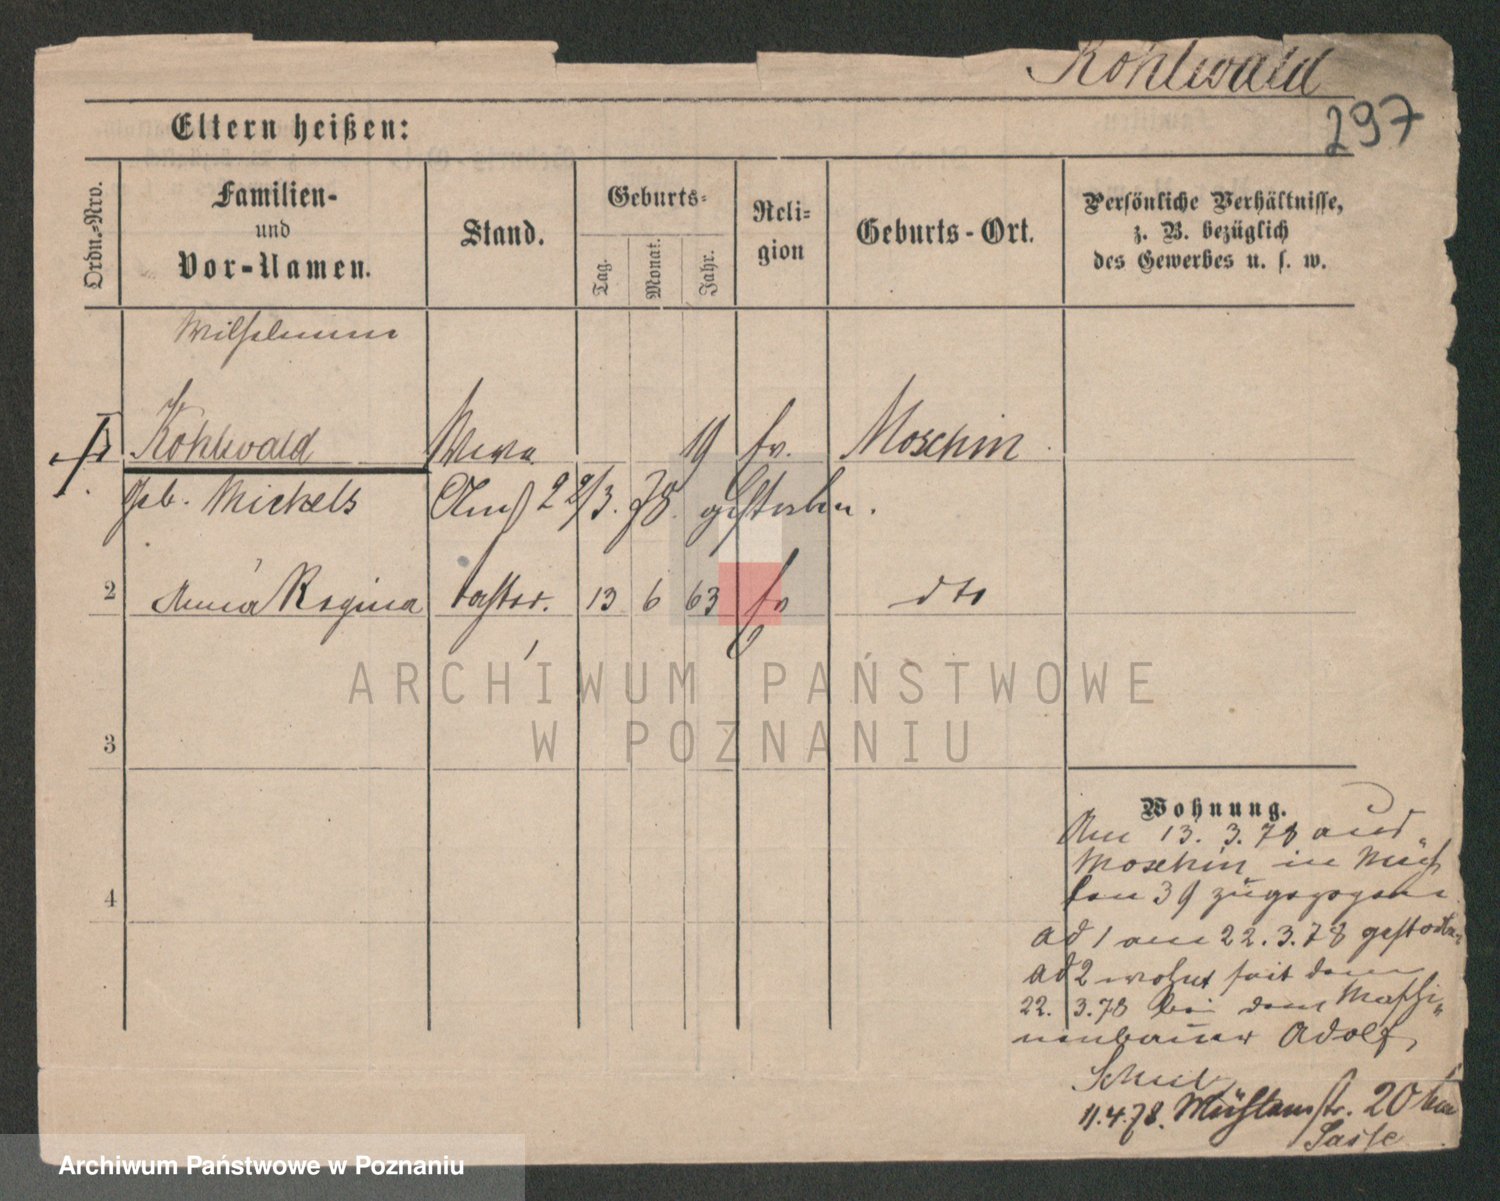 Kohlwald
297
Eltern heißen:
Ordn.-Nro.
Familien-
und
Vor-Namen.
Stand.
Geburts-
Tag.
Monat.
Jahr.
Reli-
gion
Geburts-Ort.
Persönliche Verhältnisse,
z. B. bezüglich
des Gewerbes u. s. w.
Wilhelmine
1 Kohlwald Wwe 19 ev. Moschin
geb. Mickels Am 22/3. 78 gestorben.
2 Anna Regina Tochter. 13 6 63 ev dto
3
4
Wohnung.
Am 13. 3. 78 aus
Moschin in Müh
len 39 zugezogen
ad 1 am 22. 3. 78 gestorben
ad 2 wohnt seit dem
22. 3. 78 bei dem Maschi-
nenbauer Adolf
11.4.78. Mühlenstr. 20 bei
Sasse
ARCHIWUM PAŃSTWOWE
W POZNANIU
Archiwum Państwowe w Poznaniu